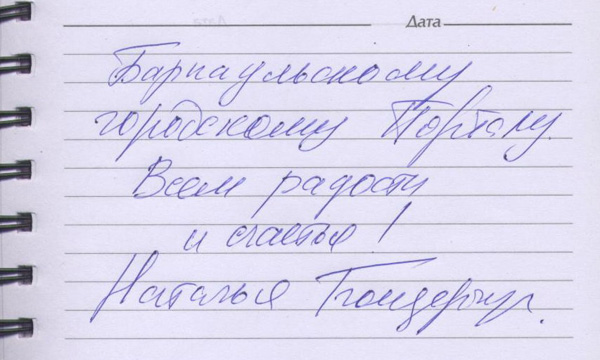 Дата
Барнаульскому
городскому Порталу.
Всем радости
и счастья!
Наталья Бондарчук.